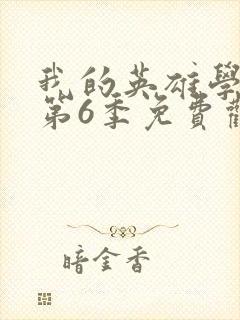 我的英雄學
第6季免費
暗金香